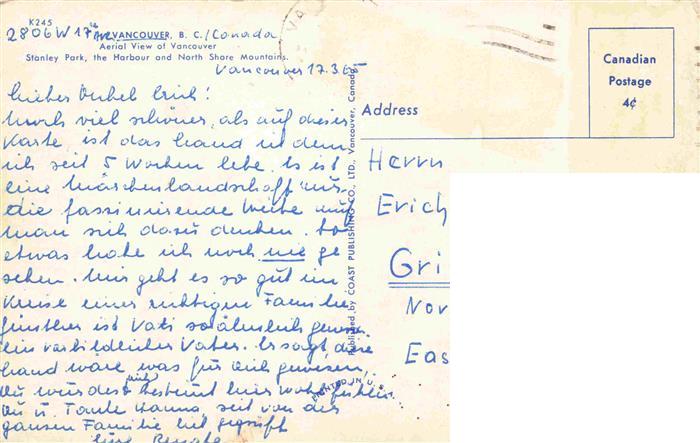 K245
2806 W 17th Ave VANCOUVER, B. C./Canada
Aerial View of Vancouver
Stanley Park, the Harbour and North Shore Mountains.
Vancouver 17.3.65
Lieber Onkel Erich!
Noch viel schöner, als auf dieser
Karte ist das Land in dem
ich seit 5 Wochen lebe. Es ist
eine Märchenlandschaft nur
die faszinierende Weite muß
man sich dazu denken. So
etwas habe ich noch nie ge
sehen. Mir geht es so gut im
Kreise einer richtigen Familie
Günther ist Vati so ähnlich geworden
ein vorbildlicher Vater. Er sagt, diese
Land wäre was für Dich gewesen.
Du würdest Dich bestimmt hier wohl fühlen
Du u. Tante Hanna, seit von der
ganzen Familie lieb gegrüßt
Eure Renate
Published by COAST PUBLISHING CO., LTD., Vancouver, Canada
PRINTED IN U.S.A.
Canadian
Postage
4¢
Address
Herrn
Erich
Gri
Nor
Eas